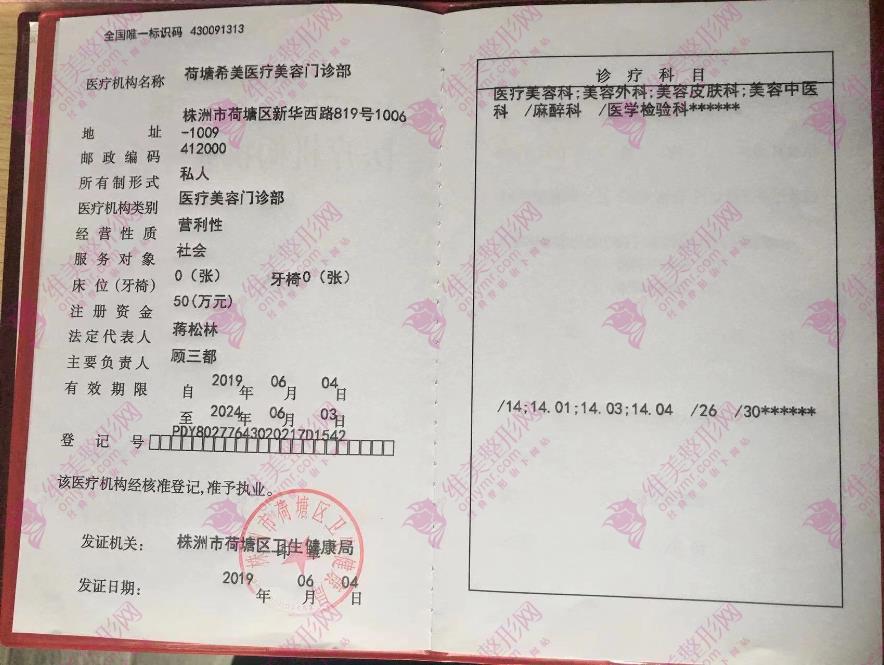 全国唯一标识码 430091313
医疗机构名称 荷塘希美医疗美容门诊部
株洲市荷塘区新华西路819号1006
地 址 -1009
邮政编码 412000
所有制形式 私人
医疗机构类别 医疗美容门诊部
经营性质 营利性
服务对象 社会
床位(牙椅) 0（张） 牙椅0（张）
注册资金 50(万元)
法定代表人 蒋松林
主要负责人 顾三都
有效期限 自 2019年 06月 04日
至 2024年 06月 03日
登记号 PDY80277643020217D1542
该医疗机构经核准登记,准予执业。
发证机关： 株洲市荷塘区卫生健康局
印 章
发证日期： 2019年 06月 04日
诊 疗 科 目
医疗美容科;美容外科;美容皮肤科;美容中医
科 /麻醉科 /医学检验科******
/14;14.01;14.03;14.04 /26 /30******
维美整形网
onlymr.com